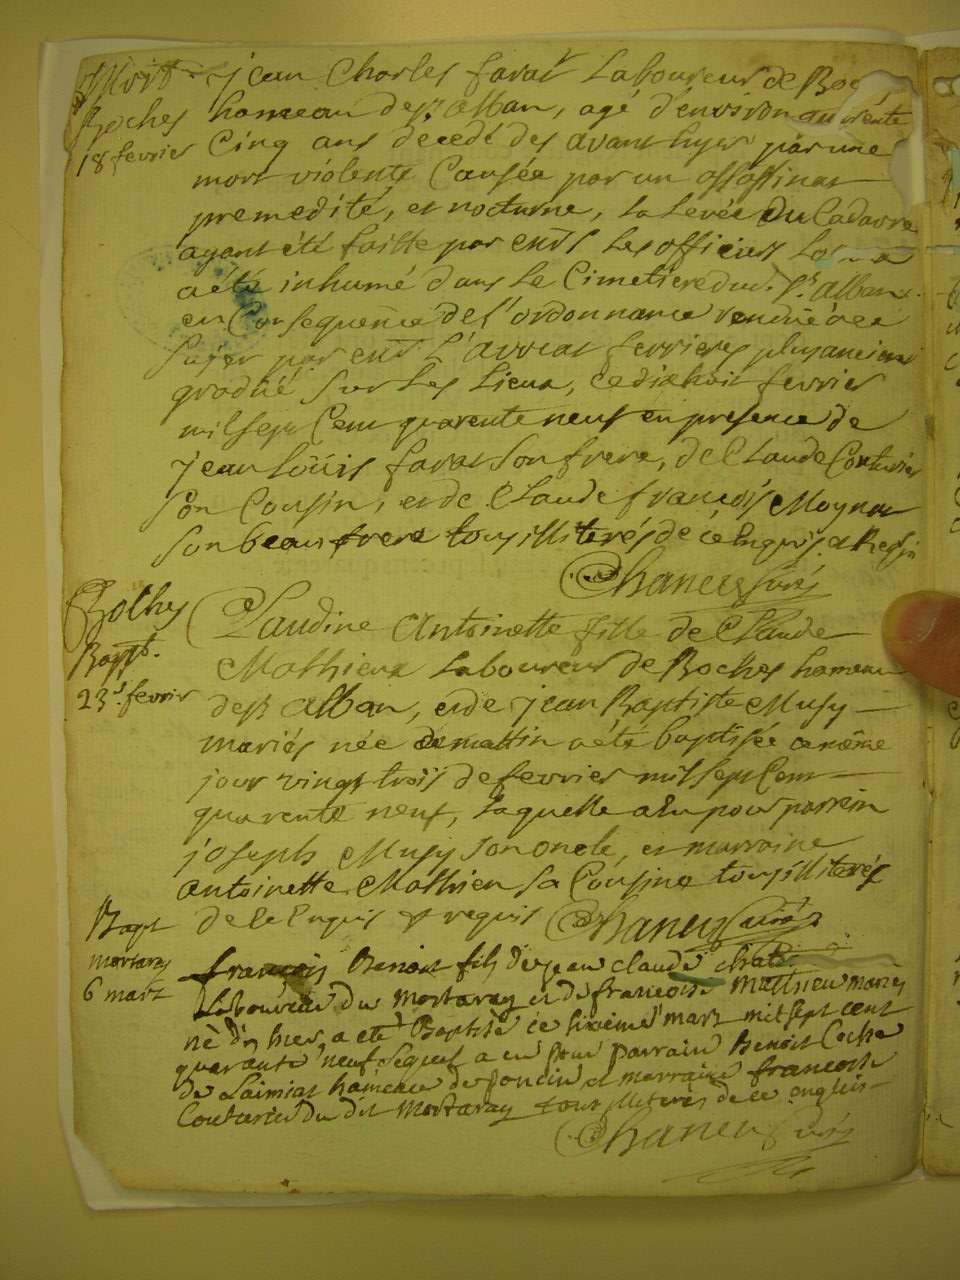 Mort. jean Charles farat Laboureur de Boc
Boches hameau de St alban, agé d'environ quarente
18 fevrier Cinq ans decedé des avant hyer par une
mort violente Causée par un assassinat
premedité, et nocturne, la Levée du Cadavre
ayant été faitte par les officiers
a été inhumé dans le Cimetiere dud. St alban
en Consequence de l'ordonnance rendue
par L'avocat ferrieres plus ancien
gradué sur les Lieux, ce dixhuit fevrier
mil sept Cent quarente neuf en presence de
jean Loüis farat son frere, de Claude Couturier
son Cousin, et de Claude françois Moynat
son beau frere tous illiterés de ce Enquis et Requis
Chaneu Curé
Boches Claudine Antoinette fille de Claude
Bapt. Mathieu Laboureur de Boches hameau
23e fevrier de St alban, et de jean Baptiste Musy
mariés née ce mattin a été baptisée ce même
jour vingt trois de fevrier mil sept Cent
quarente neuf, Laquelle a Eu pour parrein
joseph Musy son oncle, et marraine
antoinette Mathieu sa Cousine tous illiterés
de ce Enquis & requis Chaneu Curé
Bapt mortaray françois Benoit fils de jean claude chatel
6 marz Laboureur du mortaray et de francoise matthieu mariés
né d'hier, a eté Baptisé ce sixieme marz mil sept cent
quarante neuf Lequel a eu pour parrain Benoit Coche
de Laimiat hameau de poncin et marraine francoise
Couturier du dit mortaray tous illiterés de ce enquis
Chaneu Curé